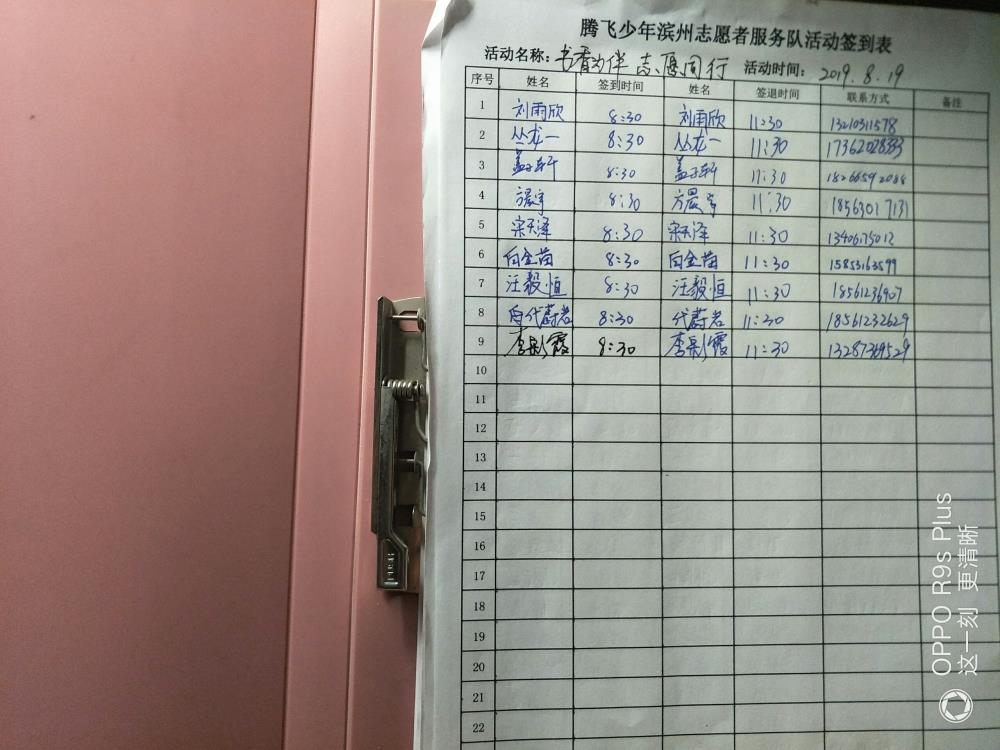 腾飞少年滨州志愿者服务队活动签到表
活动名称：书香为伴 志愿同行 活动时间：2019.8.19
序号 姓名 签到时间 姓名 签退时间 联系方式 备注
1 刘雨欣 8:30 刘雨欣 11:30 13210311578
2 丛龙一 8:30 丛龙一 11:30
3 8:30 11:30
4 方晨宇 8:30 方晨宇 11:30 18563017131
5 宋天泽 8:30 宋天泽 11:30
6 白金苗 8:30 白金苗 11:30 15853163599
7 汪毅恒 8:30 汪毅恒 11:30 18561236907
8 代蔚岩 8:30 代蔚岩 11:30 18561232629
9 李彩霞 8:30 李彩霞 11:30 13287369529
10
11
12
13
14
15
16
17
18
19
20
21
22
OPPO R9s Plus
这一刻 更清晰